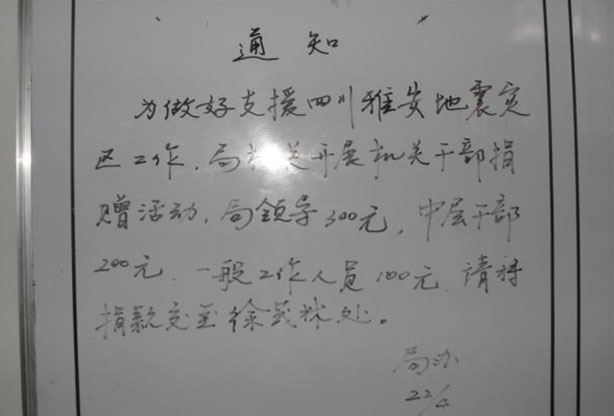 通知
为做好支援四川雅安地震灾
区工作,局机关开展机关干部捐
赠活动,局领导300元,中层干部
200元,一般工作人员100元,请将
捐款交至徐 处。
局办
22/4